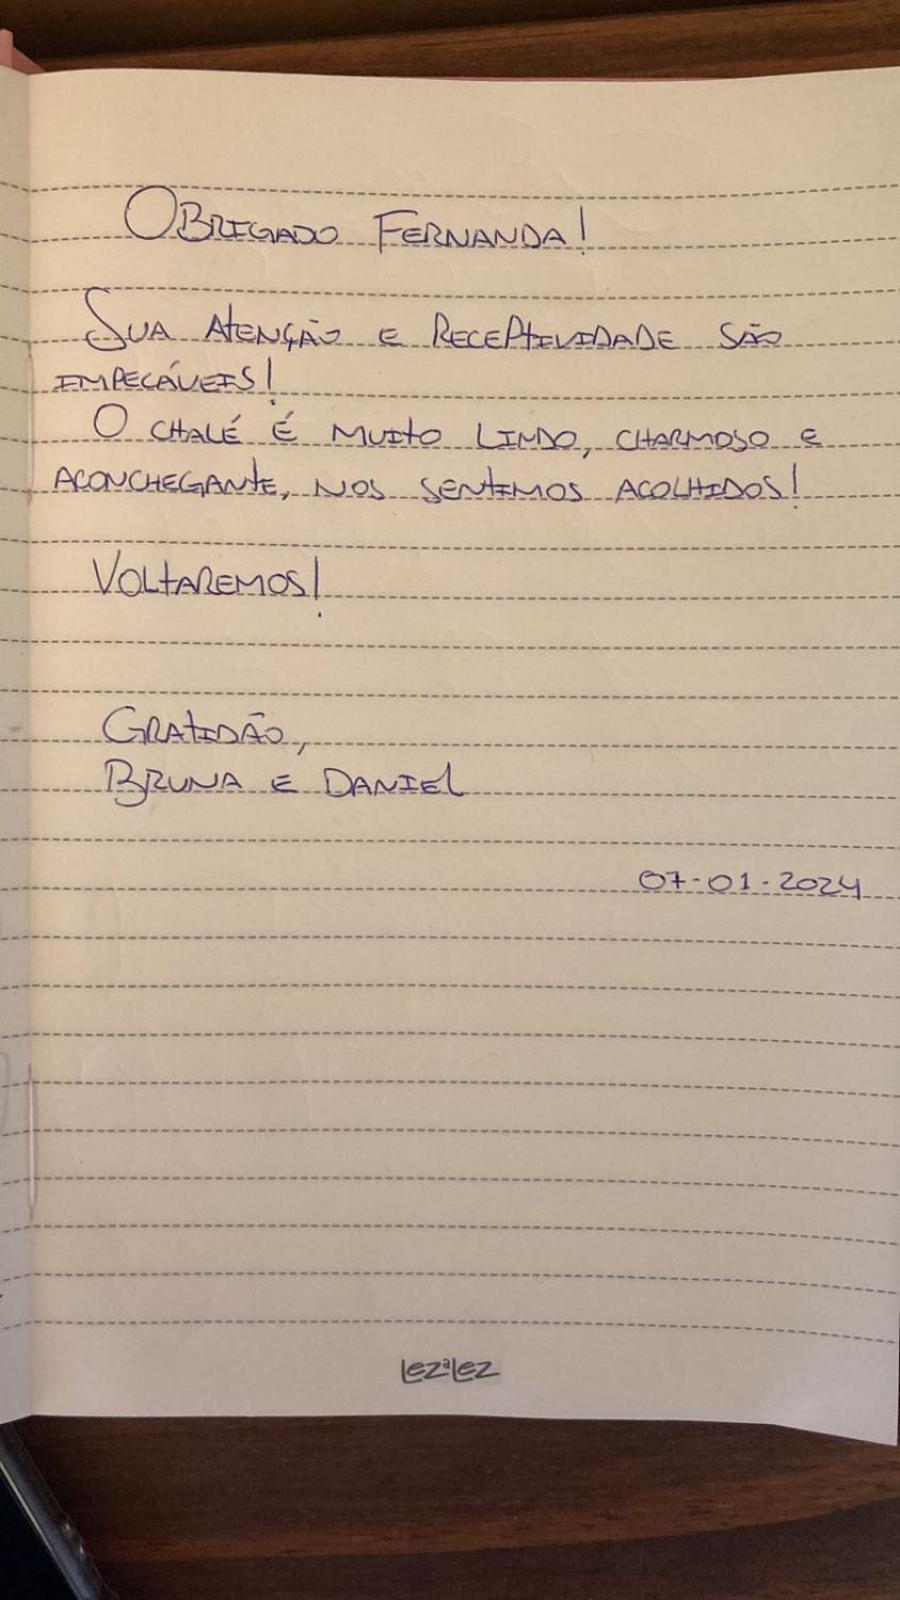 OBRIGADO FERNANDA!
SUA ATENÇÃO E RECEPTIVIDADE SÃO
IMPECÁVEIS!
O CHALÉ É MUITO LINDO, CHARMOSO E
ACONCHEGANTE, NOS SENTIMOS ACOLHIDOS!
VOLTAREMOS!
GRATIDÃO,
BRUNA E DANIEL
07-01-2024
LEZaLEZ